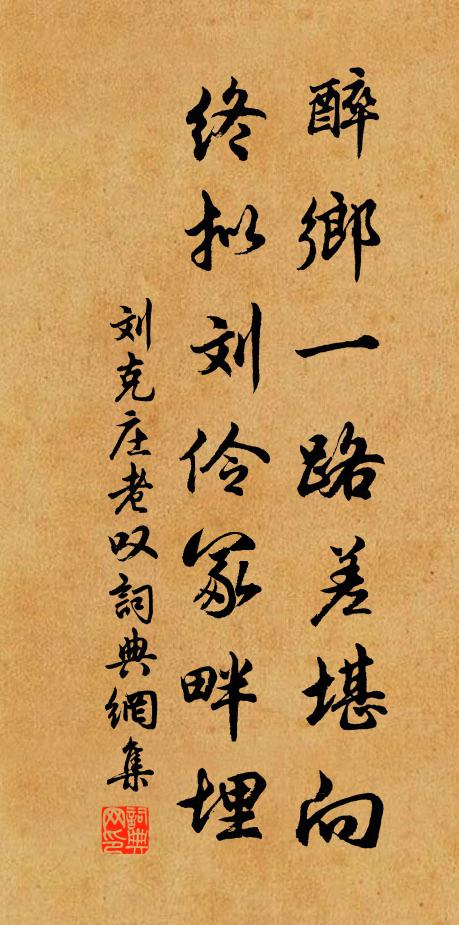 醉鄉一路差堪向
终拟刘伶冢畔埋
刘克庄老叹詞典網集
詞典
网印